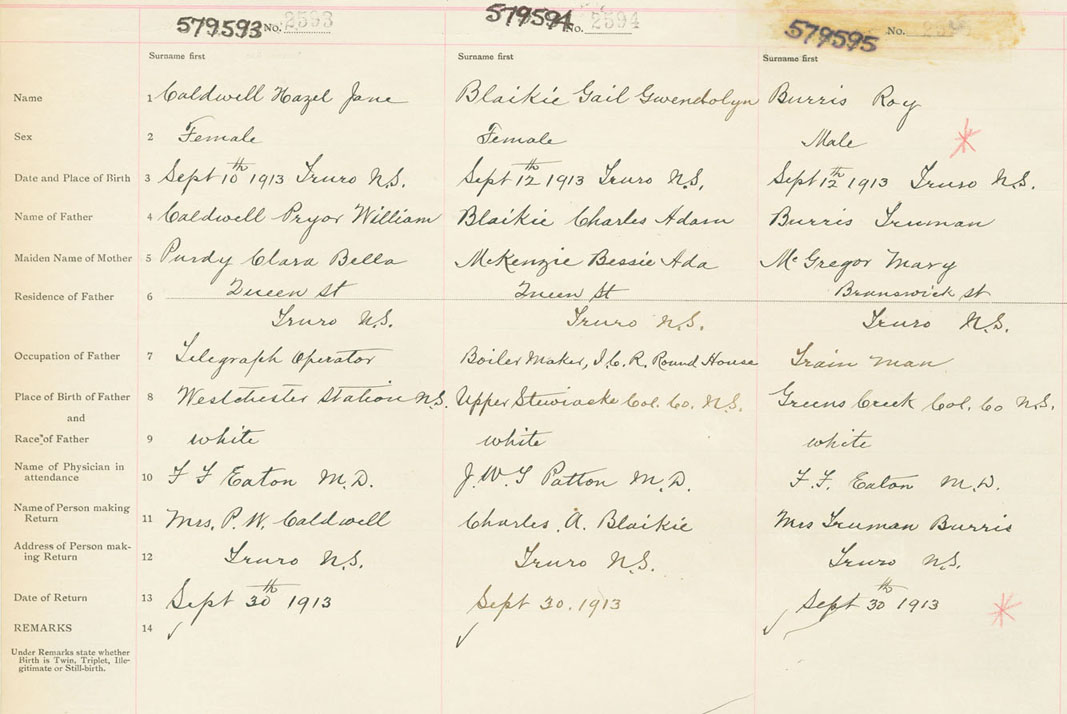 579593 No. 2593 579594 No. 2594 579595 No.
Surname first Surname first Surname first
Name 1 Caldwell Hazel Jane Blaikie Gail Gwendolyn Burris Roy
Sex 2 Female Female Male
Date and Place of Birth 3 Sept 10th 1913 Truro N.S. Sept 12th 1913 Truro N.S. Sept 12th 1913 Truro N.S.
Name of Father 4 Caldwell Pryor William Blaikie Charles Adam Burris Truman
Maiden Name of Mother 5 Purdy Clara Bella McKenzie Bessie Ada McGregor Mary
Residence of Father 6 Queen St Queen St Brunswick st
Truro N.S. Truro N.S. Truro N.S.
Occupation of Father 7 Telegraph Operator Boiler Maker, I.C.R. Round House Train man
Place of Birth of Father 8 Westchester Station N.S. Upper Stewiacke Col. Co. N.S. Greens Creek Col. Co N.S.
and
Race of Father 9 white white white
Name of Physician in attendance 10 F F Eaton M.D. J.W.T Patton M.D. F.F. Eaton M.D.
Name of Person making Return 11 Mrs. P.W. Caldwell Charles A. Blaikie Mrs Truman Burris
Address of Person making Return 12 Truro N.S. Truro N.S. Truro N.S.
Date of Return 13 Sept 30th 1913 Sept 30. 1913 Sept 30th 1913
REMARKS 14
Under Remarks state whether
Birth is Twin, Triplet, Ille-
gitimate or Still-birth.